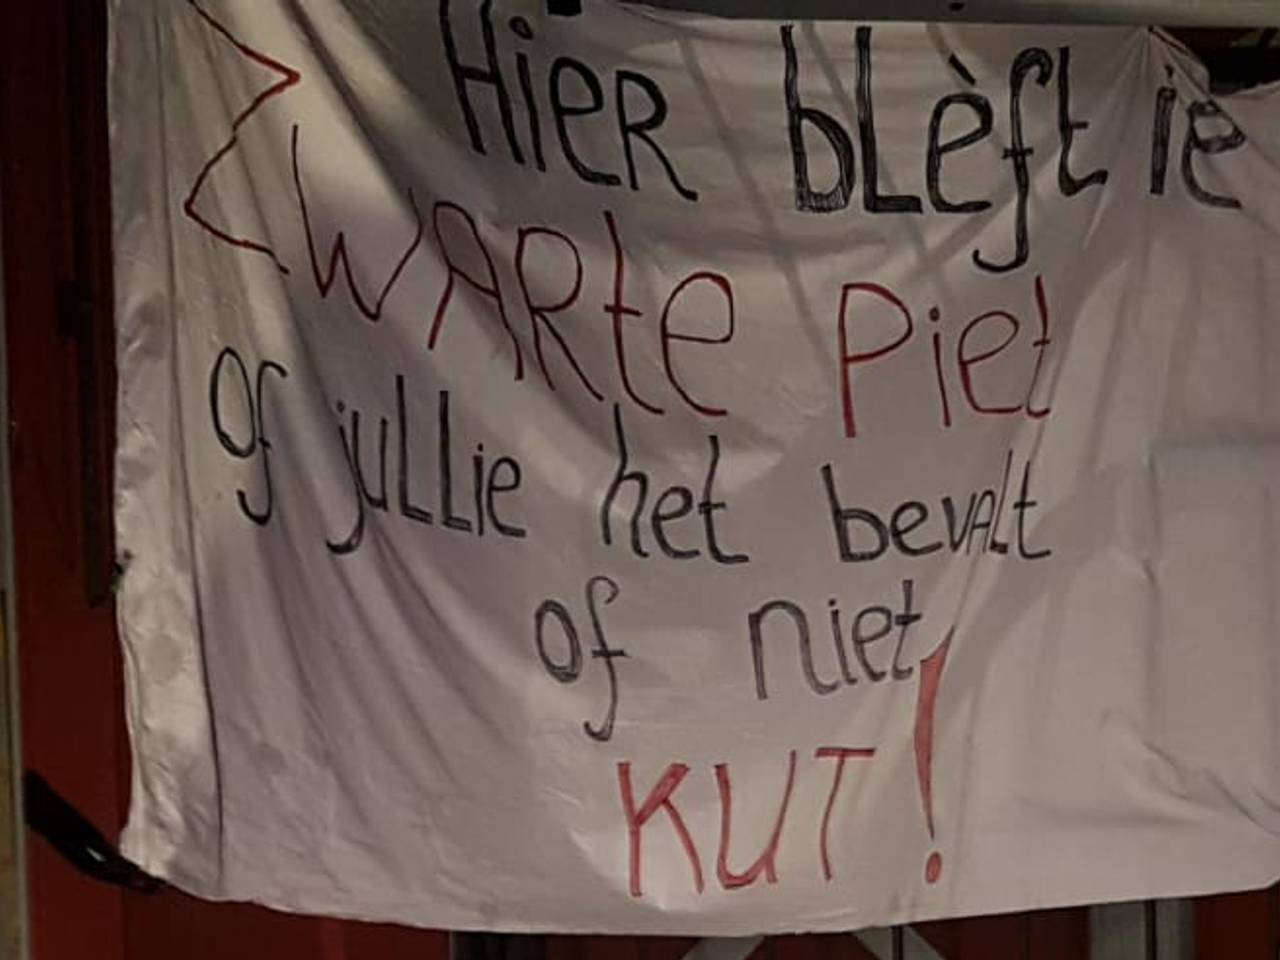 Hier blèft ie
ZWARte Piet
Of jullie het bevalt
of niet!
KUT